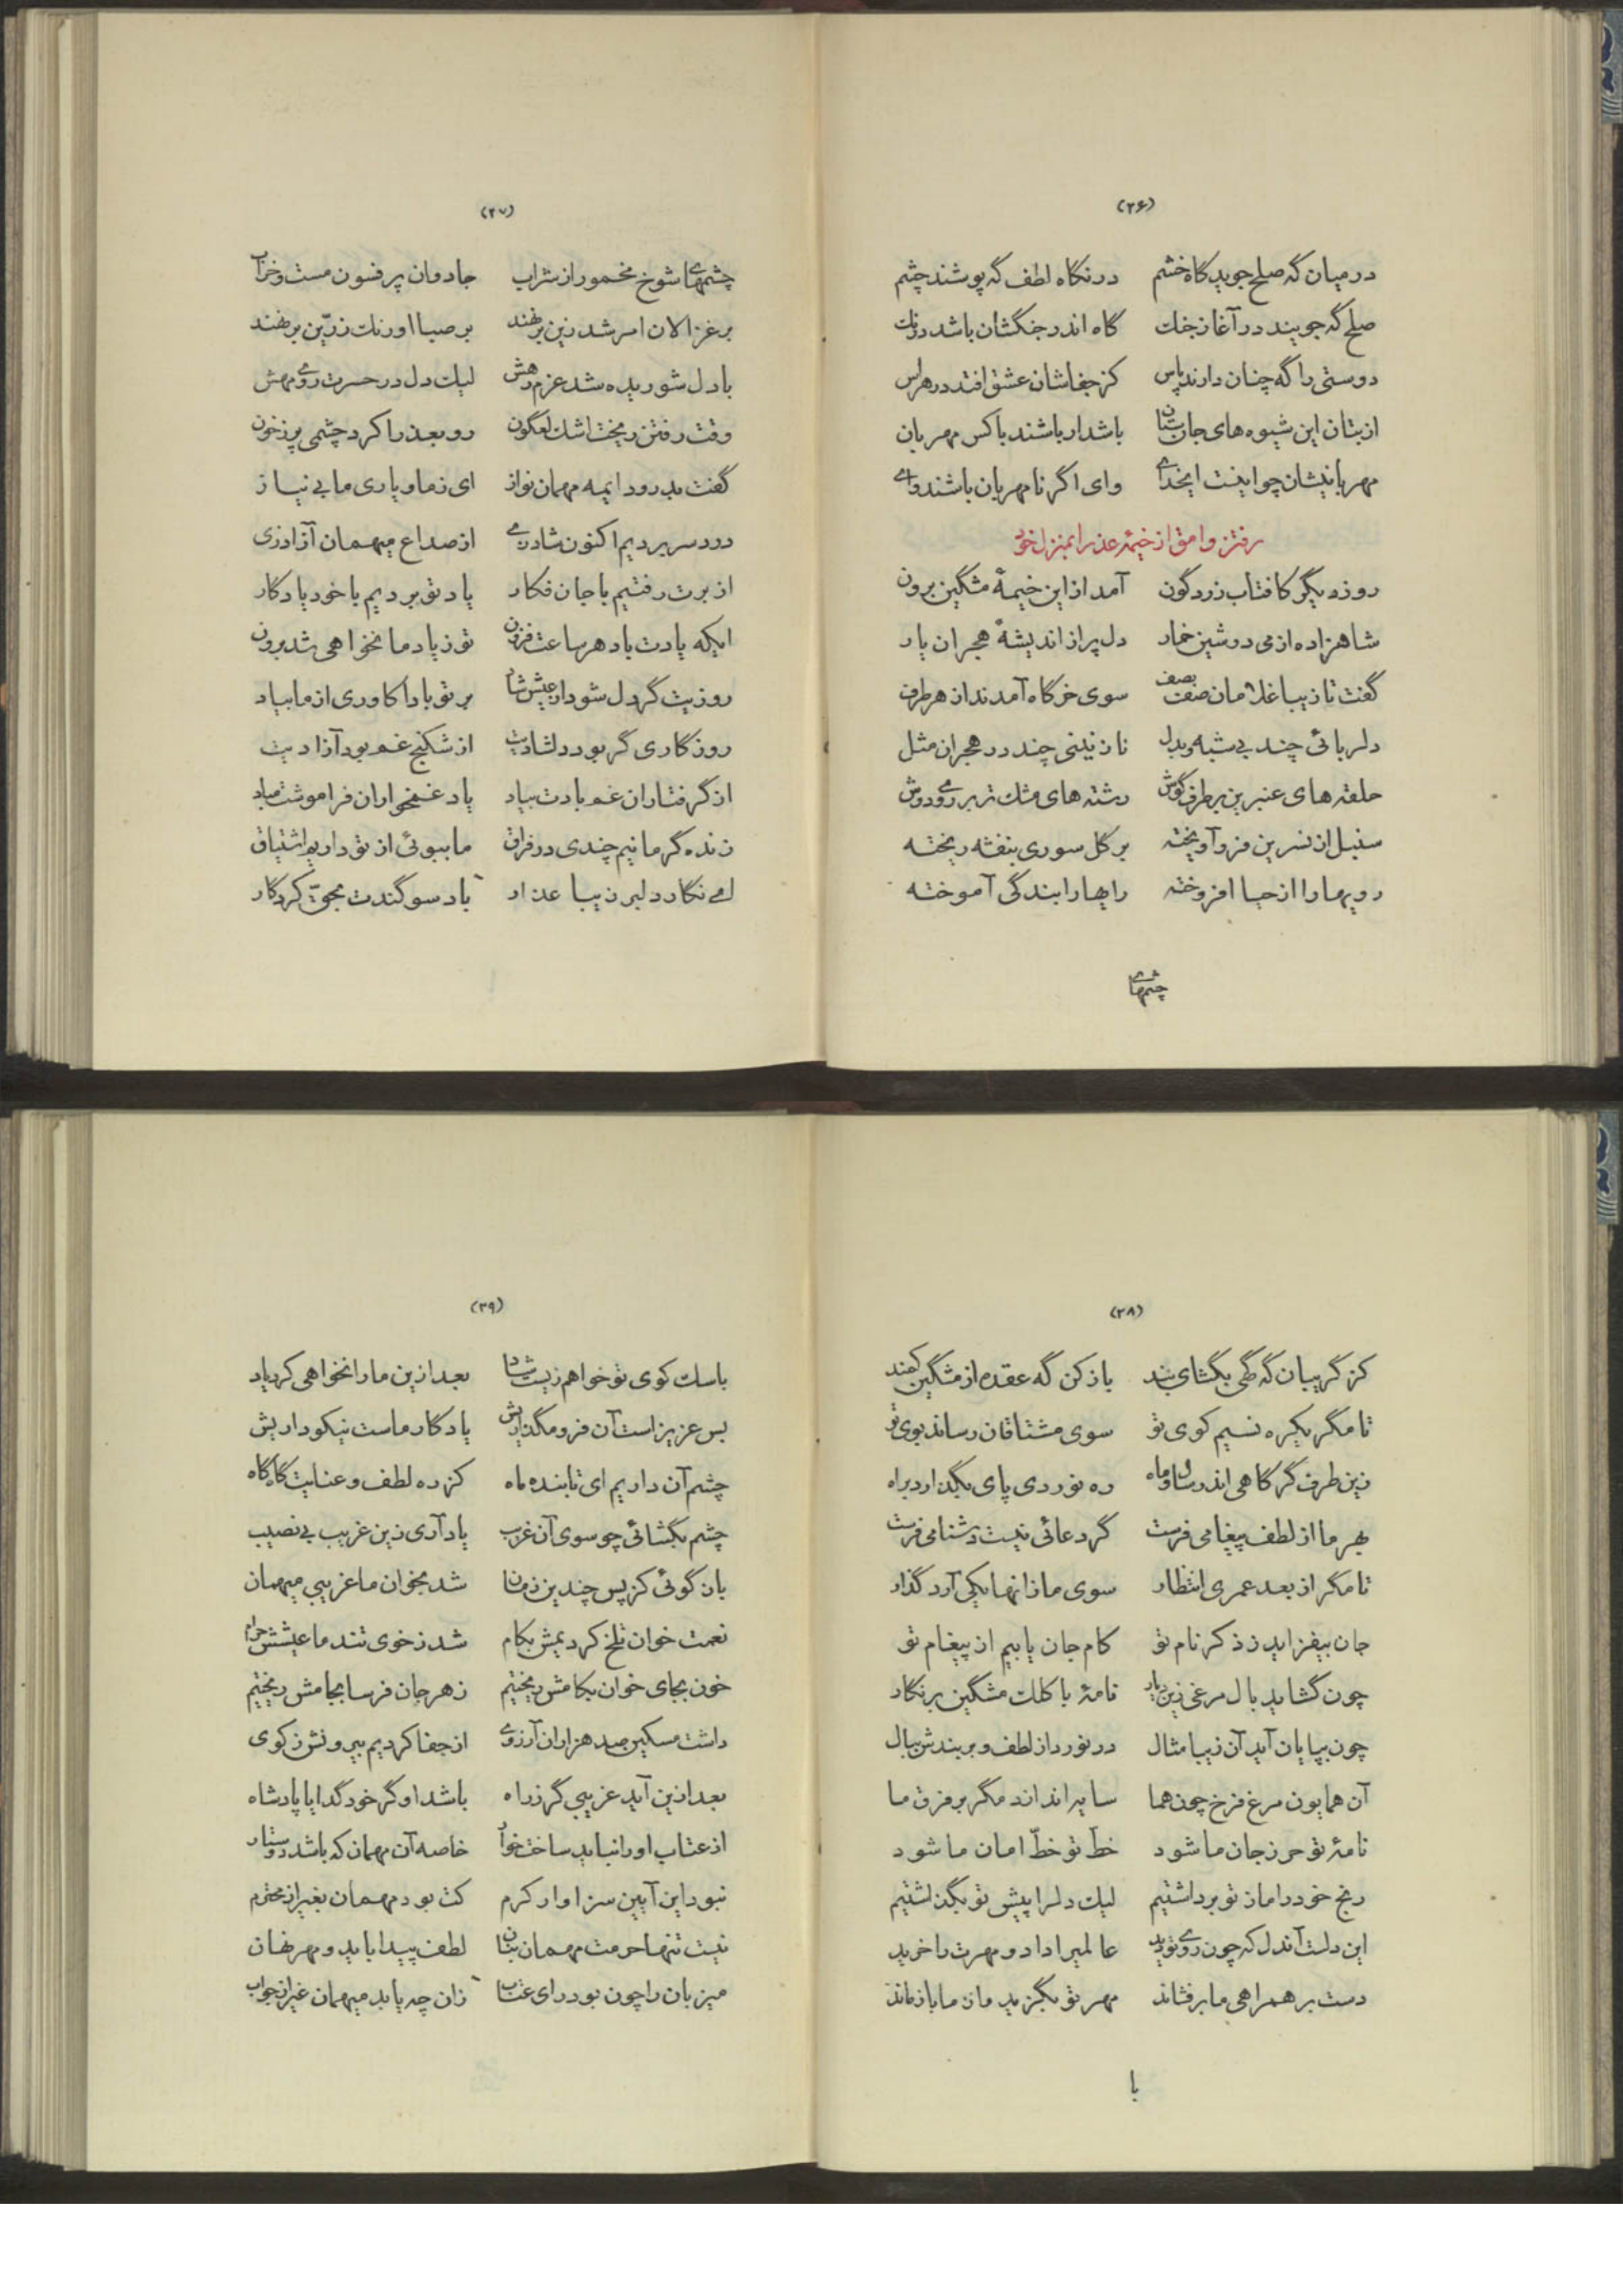 (۲۶)
در میان گه صلح جوید گاه خشم در نگاه لطف گه پوشند چشم
صلح گه جویند در آغاز جنك گاه اندر جنگشان باشد درنك
دوستی را گه چنان دارند پاس کز جفاشان عشق افتد در هراس
از بتان این شیوه های جان ستان باشد ار باشند با کس مهربان
مهربانیشان چو اینست ایخدای وای اگر نامهربان باشند وای
رفتن وامق از خیمهٔ عذرا بمنزل خود
روز دیگر کافتاب زردگون آمد از این خیمهٔ مشگین برون
شاهزاده از می دوشین خمار دل پر از اندیشهٔ هجران یار
گفت تا زیبا غلامان صف بصف سوی خرگاه آمدند از هر طرف
دلربائی چند بی شبه و بدل نازنینی چند در هجران مثل
حلقه های عنبرین بر طرف گوش رشته های مشك تر بر روی و دوش
سنبل از نسرین فرو آویخته بر گل سوری بنفشه ریخته
رویها را از حیا افروخته رایها را بندگی آموخته
چشمهای
(۲۷)
چشمهای شوخ مخمور از شراب جادوان پر فسون مست و خراب
بر غزالان امر شد زین برنهند بر صبا اورنك زرّین برنهند
با دل شوریده شد عزم رهش لیك دل در حسرت روی مهش
وقت رفتن ریخت اشك لعلگون رو بعذرا کرد چشمی پر ز خون
گفت بدرود ایمه مهمان نواز ای ز ما و یاری ما بی نیاز
درد سر بردیم اکنون شاد زی از صداع میهمان آزاد زی
از برت رفتیم با جان فکار یاد تو بردیم با خود یادگار
ایکه یادت باد هر ساعت فزون تو ز یاد ما نخواهی شد برون
روزیت گر دل شود از عیش شاد بر تو بادا کاوری از ما بیاد
روزگاری گر بود دلشادیت از شکنج غم بود آزادیت
از گرفتاران غم بادت بیاد یاد غمخواران فراموشت مباد
زنده گر مانیم چندی در فراق ما ببوئی از تو داریم اشتیاق
ای نگار دلبر زیبا عذار باد سوگندت بحقّ کردگار
(۲۸)
کز گریبان گه گهی بگشای بند باز کن گه عقده از مشگین کمند
تا مگر یکره نسیم کوی تو سوی مشتاقان رساند بوی تو
زین طرف گر گاهی اندر سال و ماه ره نوردی پای بگذارد براه
بهر ما از لطف پیغامی فرست گر دعائی نیست دشنامی فرست
تا مگر از بعد عمری انتظار سوی ما زانها یکی آرد گذار
جان بیفزاید ز ذکر نام تو کام جان یابیم از پیغام تو
چون گشاید بال مرغی زین دیار نامهٔ با کلك مشگین بر نگار
چون بپایان آید آن زیبا مثال در نورد از لطف و بربندش ببال
آن همایون مرغ فرخ چون هما سایه اندازد مگر بر فرق ما
نامهٔ تو حرز جان ما شود خطّ تو خطّ امان ما شود
رنج خود را ما ز تو برداشتیم لیك دل را پیش تو بگذاشتیم
این دلست آندل که چون روی تو دید عالمیرا داد و مهرت را خرید
دست بر همراهی ما برفشاند مهر تو بگزید و از ما باز ماند
با
(۲۹)
با سك کوی تو خواهم زیست شاد بعد ازین ما را نخواهی کرد یاد
بس عزیز است آن فرو مگذاریش یادگار ماست نیکو داریش
چشم آن داریم ای تابنده ماه کز ره لطف و عنایت گاه گاه
چشم بگشائی چو سوی آن غریب یاد آری زین غریب بی نصیب
باز گوئی کز پس چندین زمان شد بخوان ما غریبی میهمان
نعمت خوان تلخ کردیمش بکام شد ز خوی تند ما عیشش حرام
خون بجای خوان بکامش ریختیم زهر جان فرسا بجامش ریختیم
داشت مسکین صد هزاران آرزوی از جفا کردیم بیرونش ز کوی
بعد ازین آید غریبی گر ز راه باشد او گر خود گدا یا پادشاه
از عتاب او را نباید ساخت خوار خاصه آن مهمان که باشد دوستار
نبود این آیین سزاوار کرم کت بود مهمان بغیر از محترم
نیست تنها حرمت مهمان بنان لطف پیدا باید و مهر نهان
میزبان را چون بود رای عتاب زان چه یابد میهمان غیر از جواب